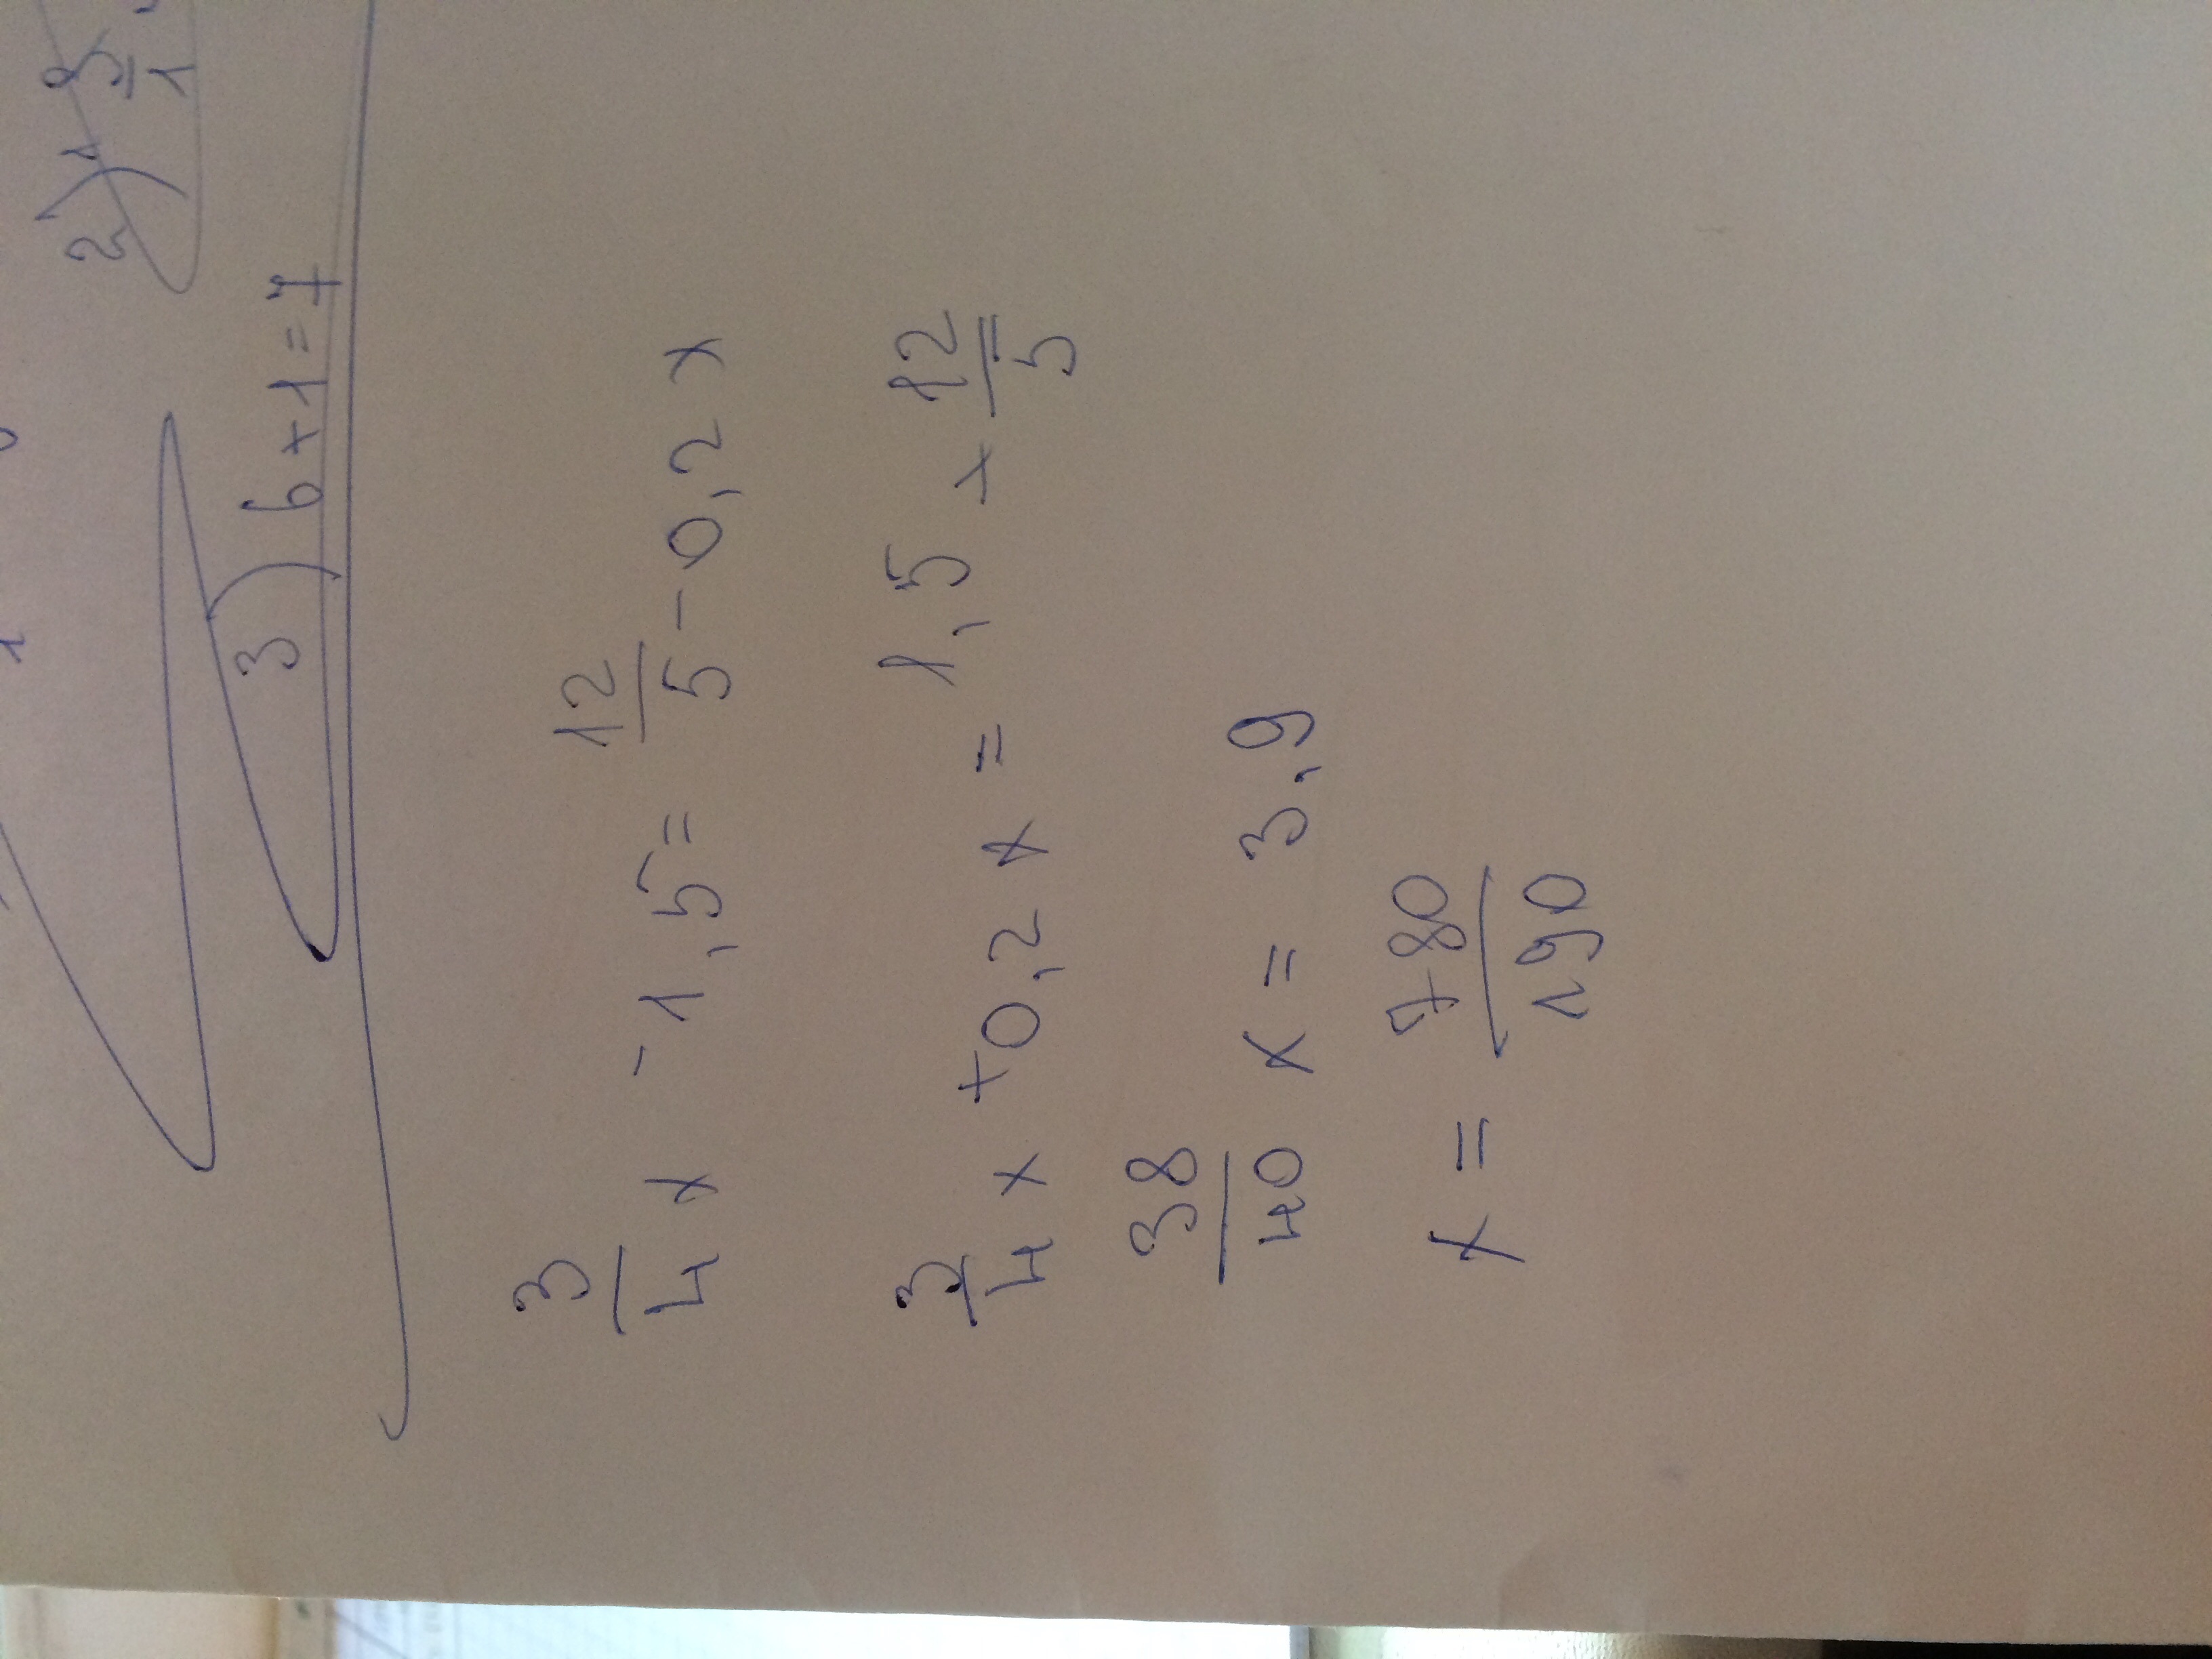 2) 1
3) 6+1=7
3/4 x - 1,5 = 12/5 - 0,2 x
3/4 x + 0,2 x = 1,5 + 12/5
38/40 x = 3,9
x = 780/190